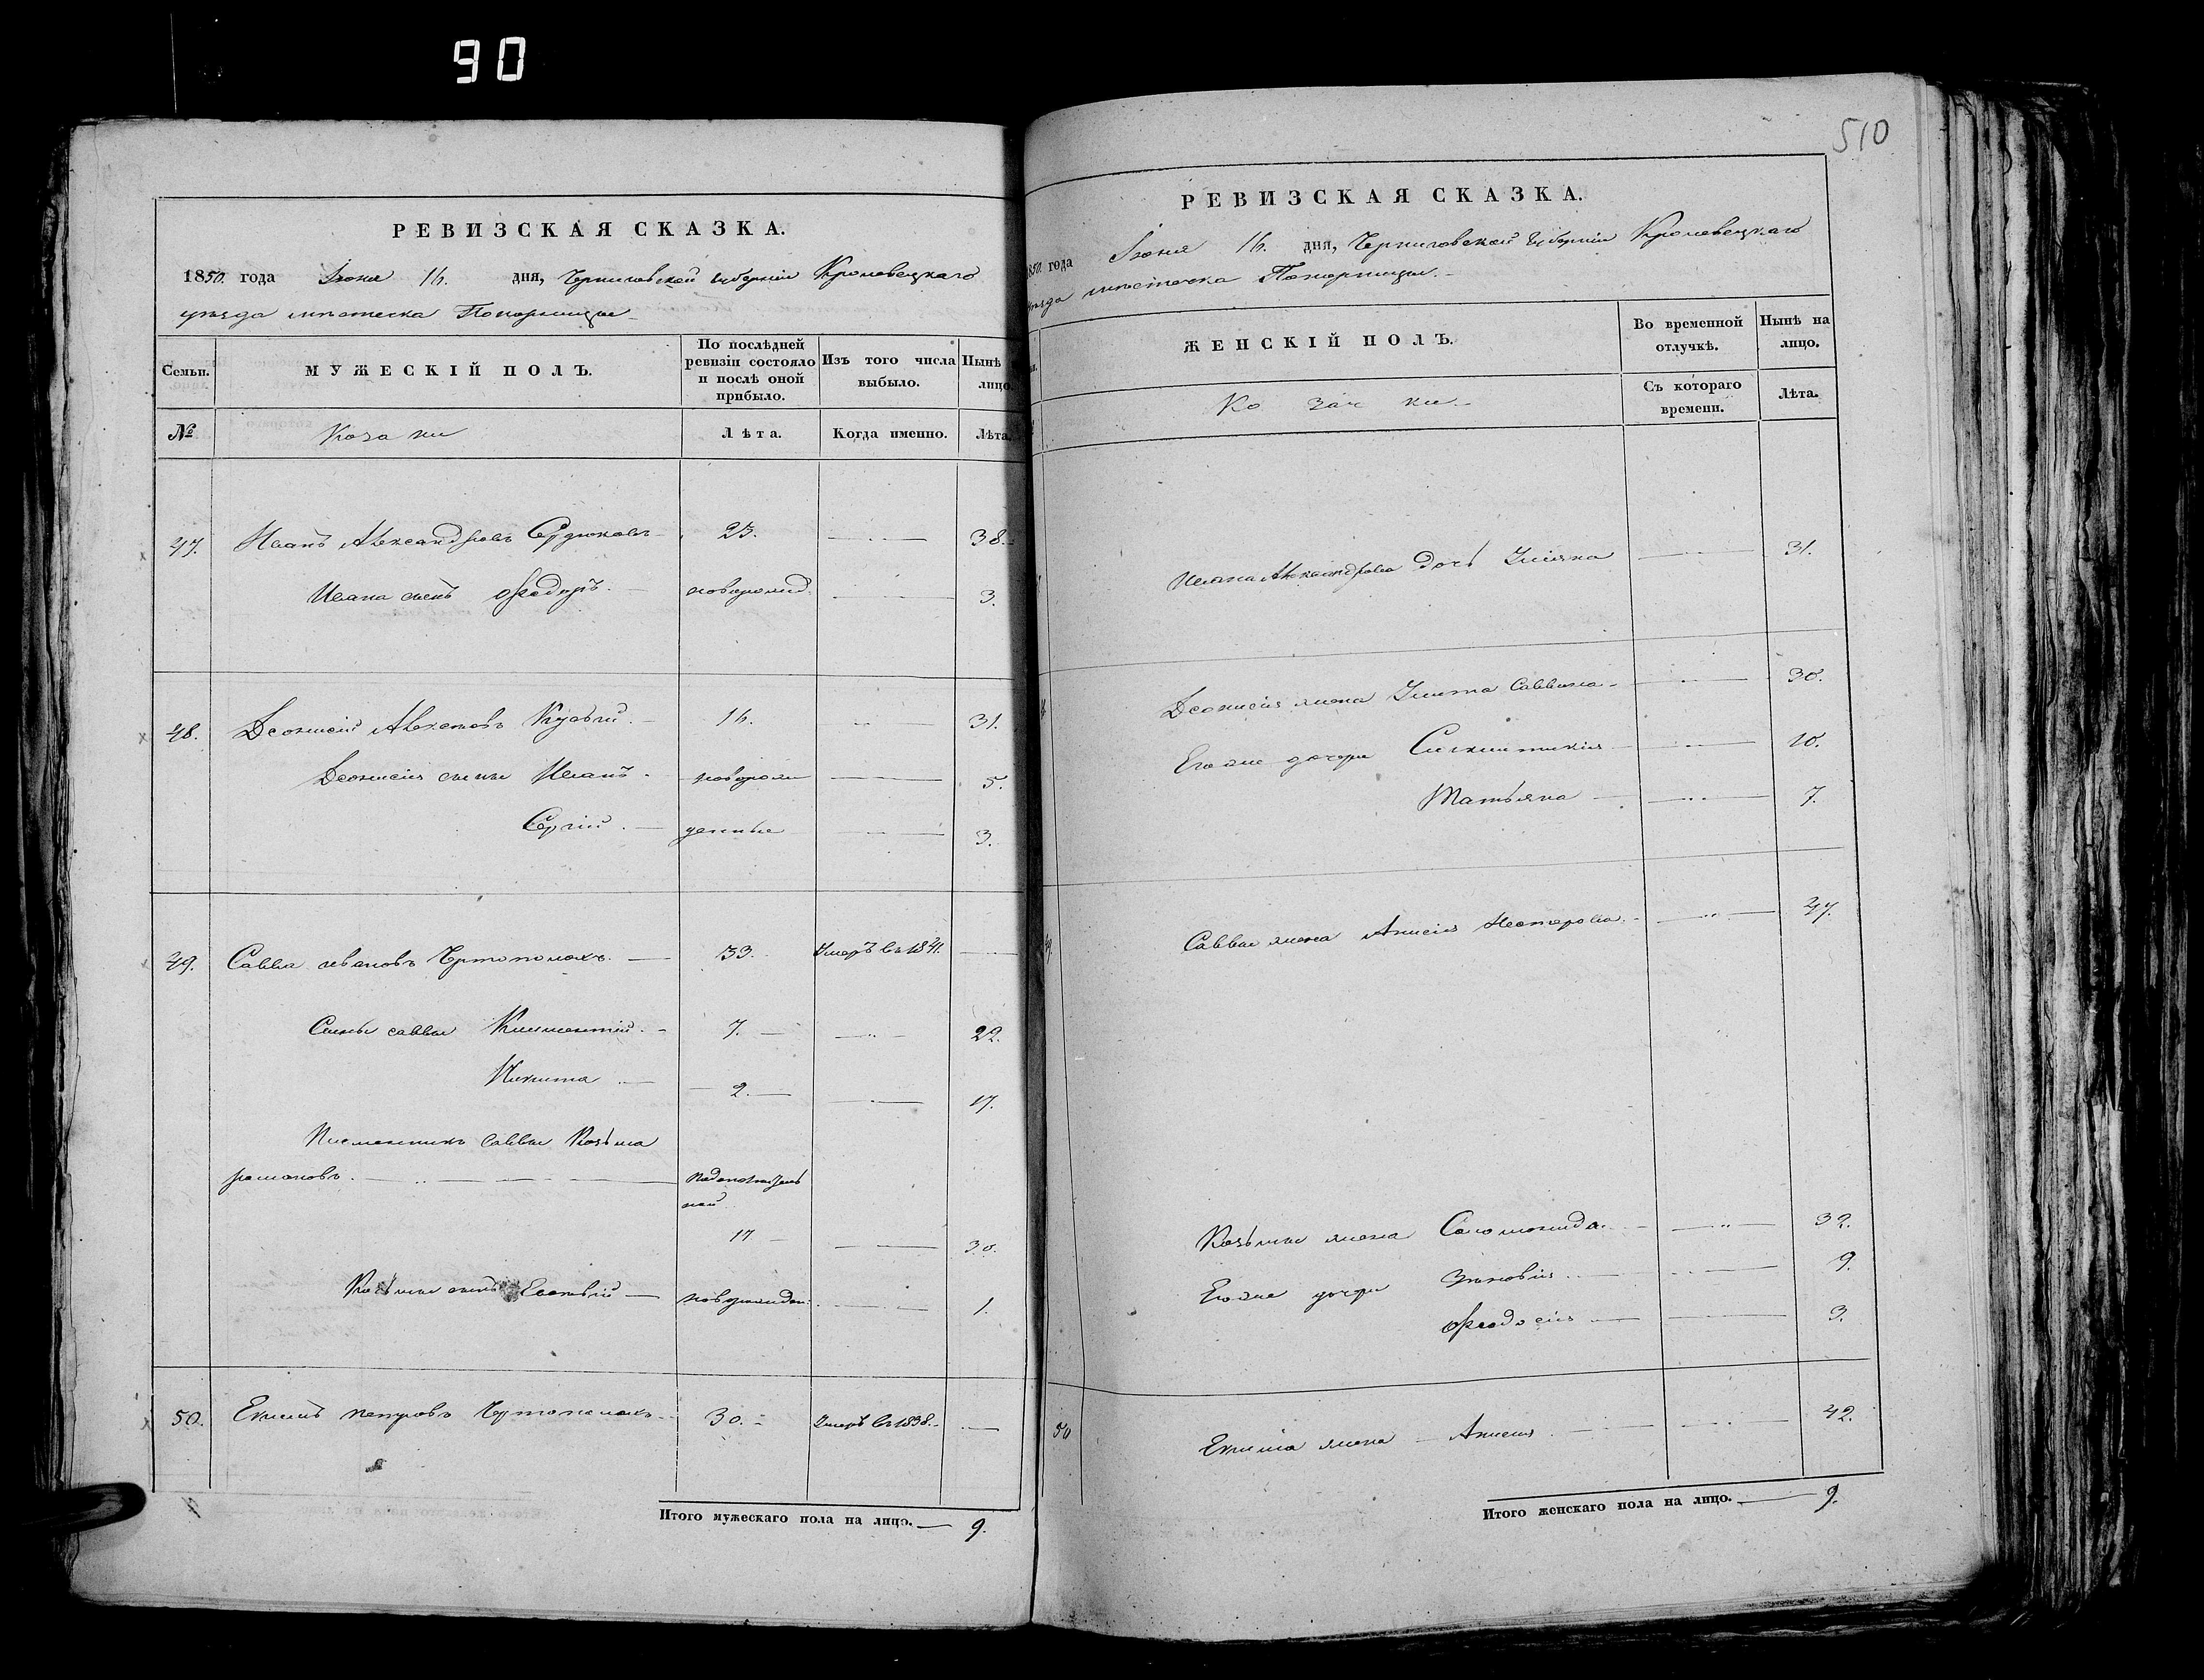 90
РЕВИЗСКАЯ СКАЗКА.
1850. года Іюня 16. дня, Черниговской Губерніи Кролевецкаго
уѣзда мѣстечка Понорницы
Семьи.
МУЖЕСКІЙ ПОЛЪ.
По послѣдней ревизіи состояло и послѣ оной прибыло.
Изъ того числа выбыло.
Нынѣ лицо
№
Козаки
Лѣта.
Когда именно.
Лѣта.
47. Иванъ Александровъ Сердюковъ 23. 38.
Ивана сынъ Ѳеодоръ. новорожд. 3.
48. Деонисій Алексѣевъ 16. 31.
Деонисія сыны Иванъ. новорож 5.
Сергій. денные 3.
49. Савва Ивановъ Чертополохъ. 33. Умеръ въ 1841.
Сыны Саввы Климентій. 7. 22.
Никита 2. 17.
Племянникъ Саввы Козьма
Романовъ.
17 30.
Козьмы сынъ Евстафій новорожден. 1.
50. Екимъ Петровъ Чертополохъ 30. Умеръ въ 1838.
Итого мужескаго пола на лицо. 9.
510
РЕВИЗСКАЯ СКАЗКА.
850. года Іюня 16. дня, Черниговской Губерніи Кролевецкаго
уѣзда мѣстечка Понорницы.
ЖЕНСКІЙ ПОЛЪ.
Во временной отлучкѣ.
Нынѣ на лицо.
Козачки.
Съ котораго времени.
Лѣта.
Ивана Александрова дочь Ульяна 31.
Деонисія жена Улита Саввина 30.
Его же дочери Синклитикія 10.
Татьяна 7.
49. Саввы жена Анисія Нестерова. 47.
Козьмы жена Соломонида. 32.
Его же дочери Зѣновія 9.
Ѳеодосія 3.
50 Екима жена Анисія 42.
Итого женскаго пола на лицо. 9.